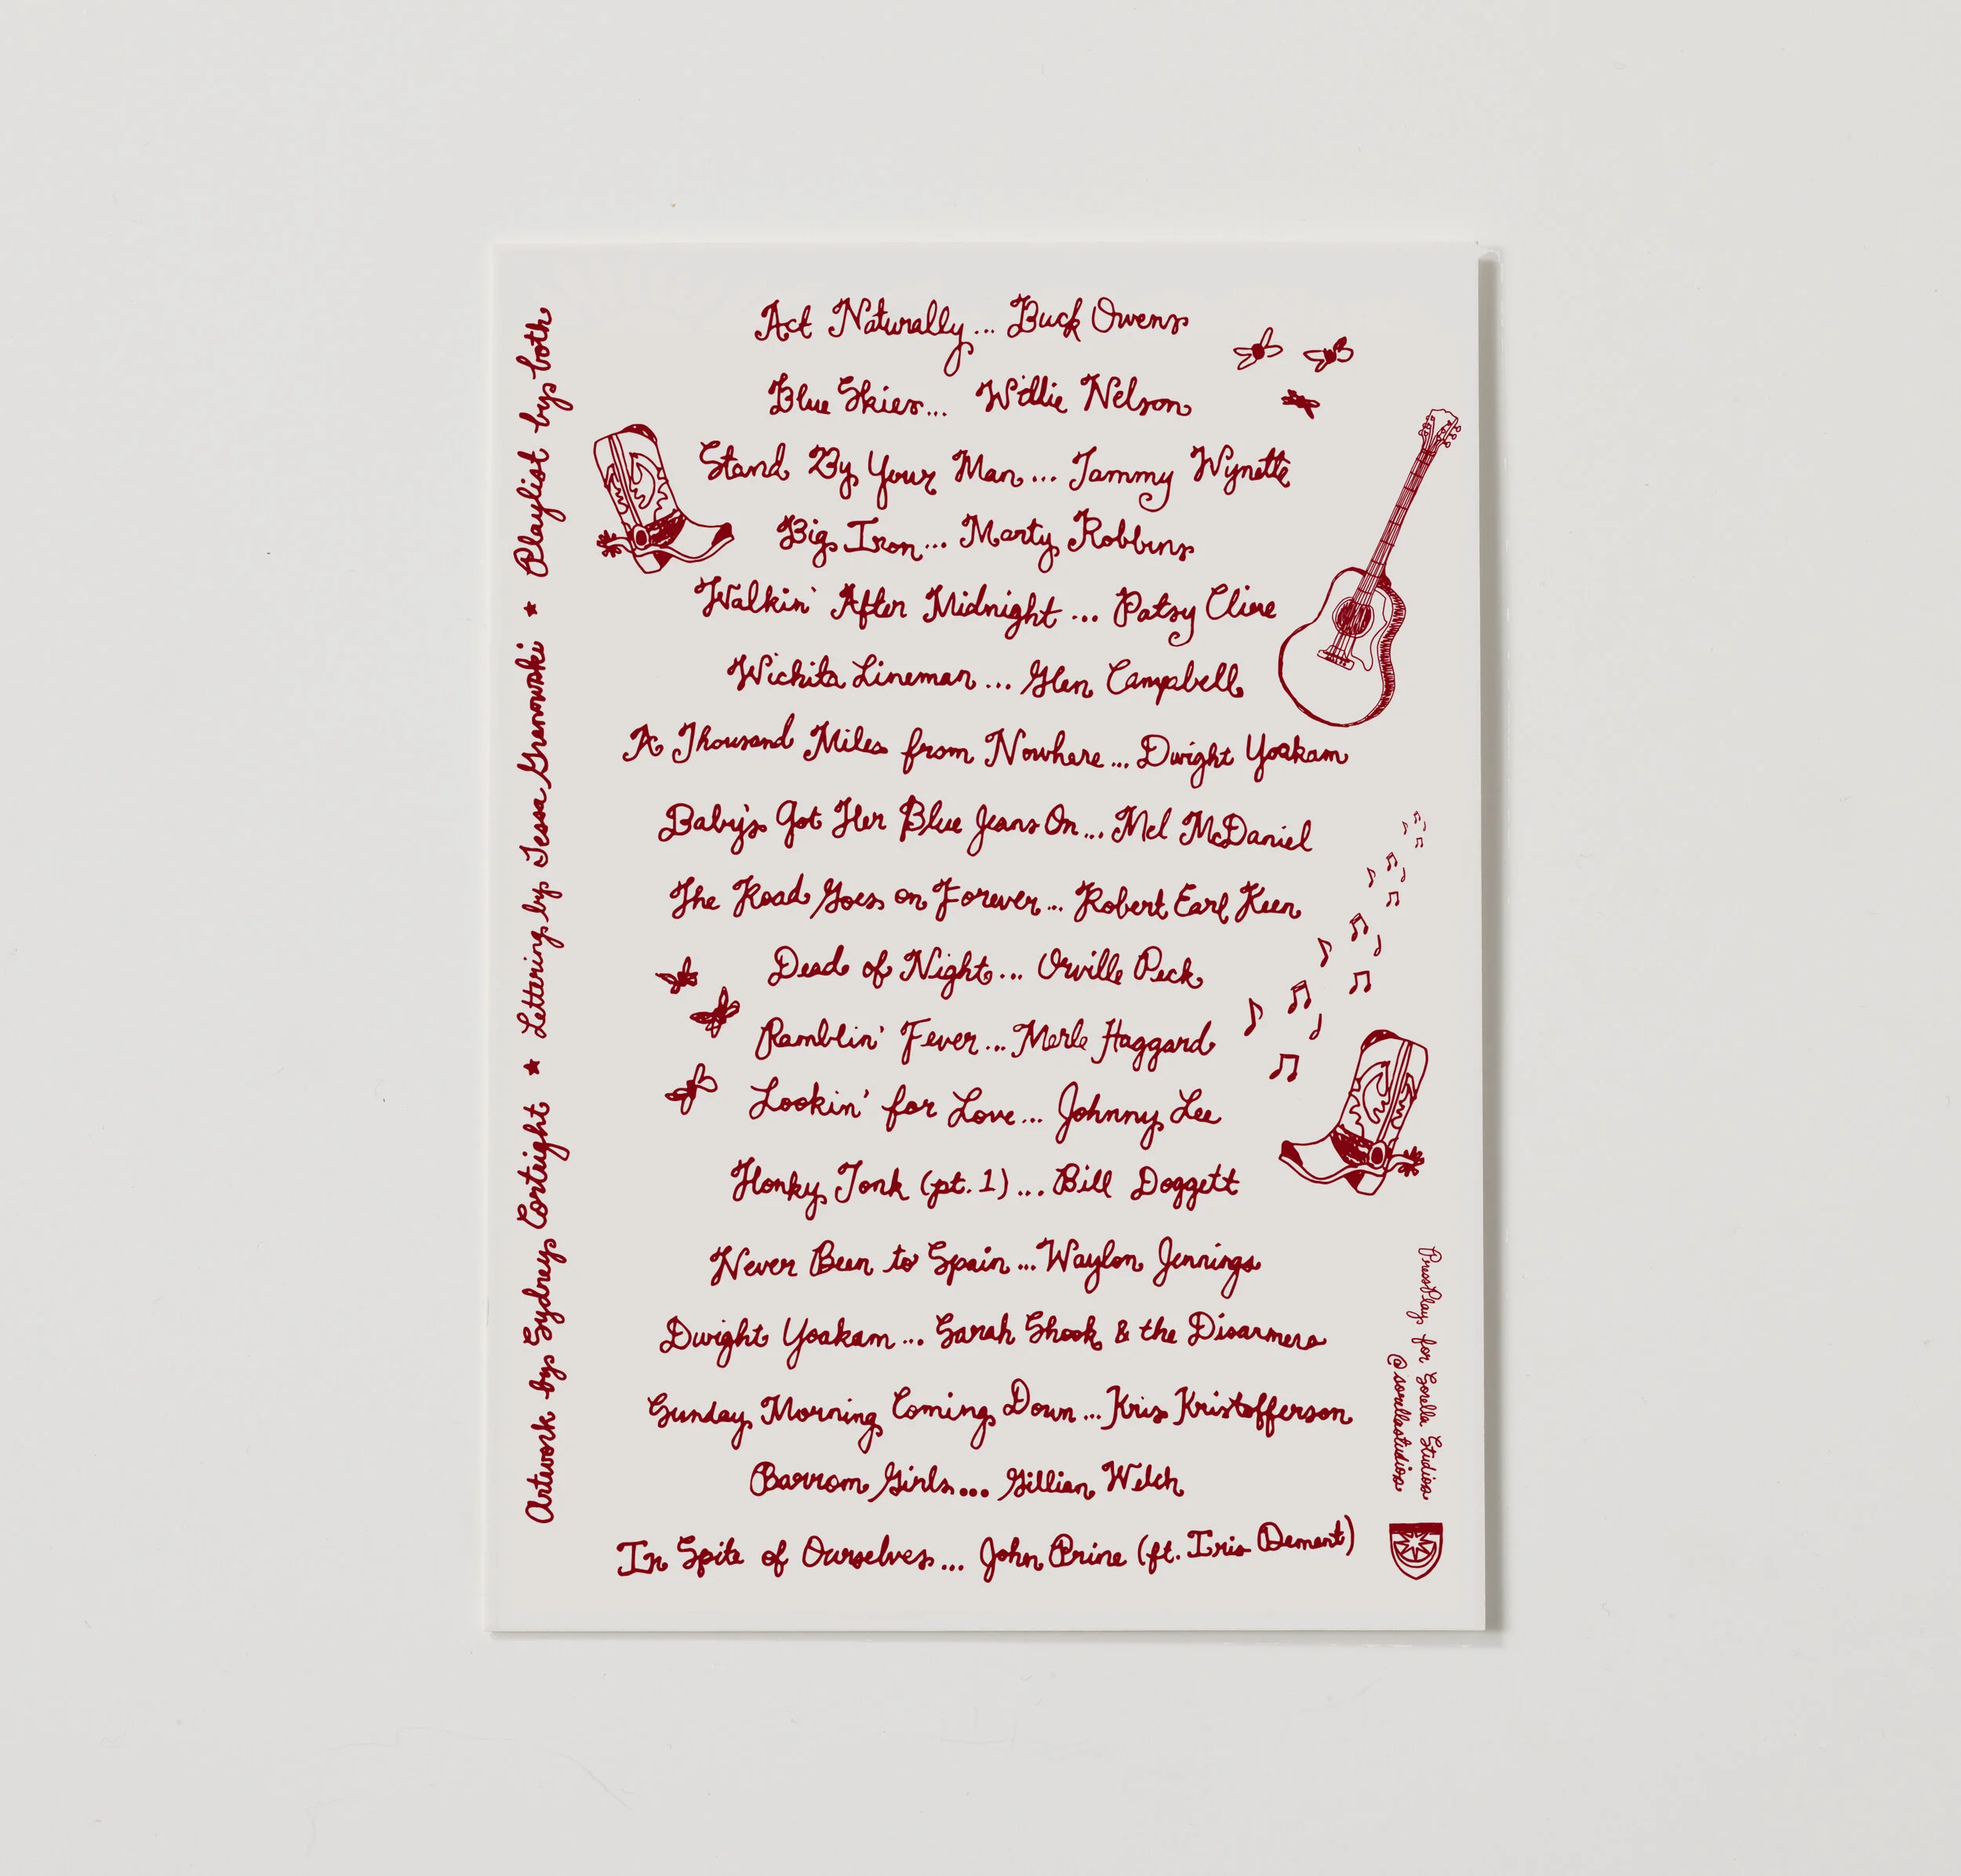 Act Naturally... Buck Owens
Blue Skies... Willie Nelson
Stand By Your Man... Tammy Wynette
Big Iron... Marty Robbins
Walkin' After Midnight... Patsy Cline
Wichita Lineman... Glen Campbell
A Thousand Miles from Nowhere... Dwight Yoakam
Baby's Got Her Blue Jeans On... Mel McDaniel
The Road Goes on Forever... Robert Earl Keen
Dead of Night... Orville Peck
Ramblin' Fever... Merle Haggard
Lookin' for Love... Johnny Lee
Honky Tonk (pt. 1)... Bill Doggett
Never Been to Spain... Waylon Jennings
Dwight Yoakam... Sarah Shook & the Disarmers
Sunday Morning Coming Down... Kris Kristofferson
Barrom Girls... Gillian Welch
In Spite of Ourselves... John Prine (ft. Iris Dement)
Artwork by Sydney Cortright ★ Lettering by Tessa Granowski ★ Playlist by both
PressPlay for Sorella Studios
@sorellastudios